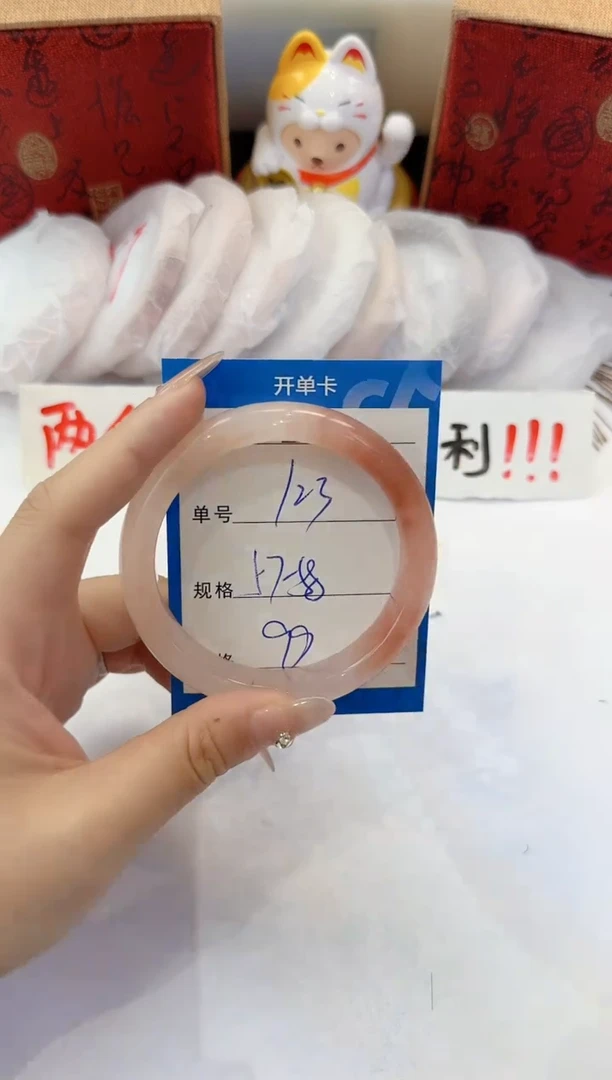 开单卡
两
利!!!
单号 123
规格 57-58
格 99